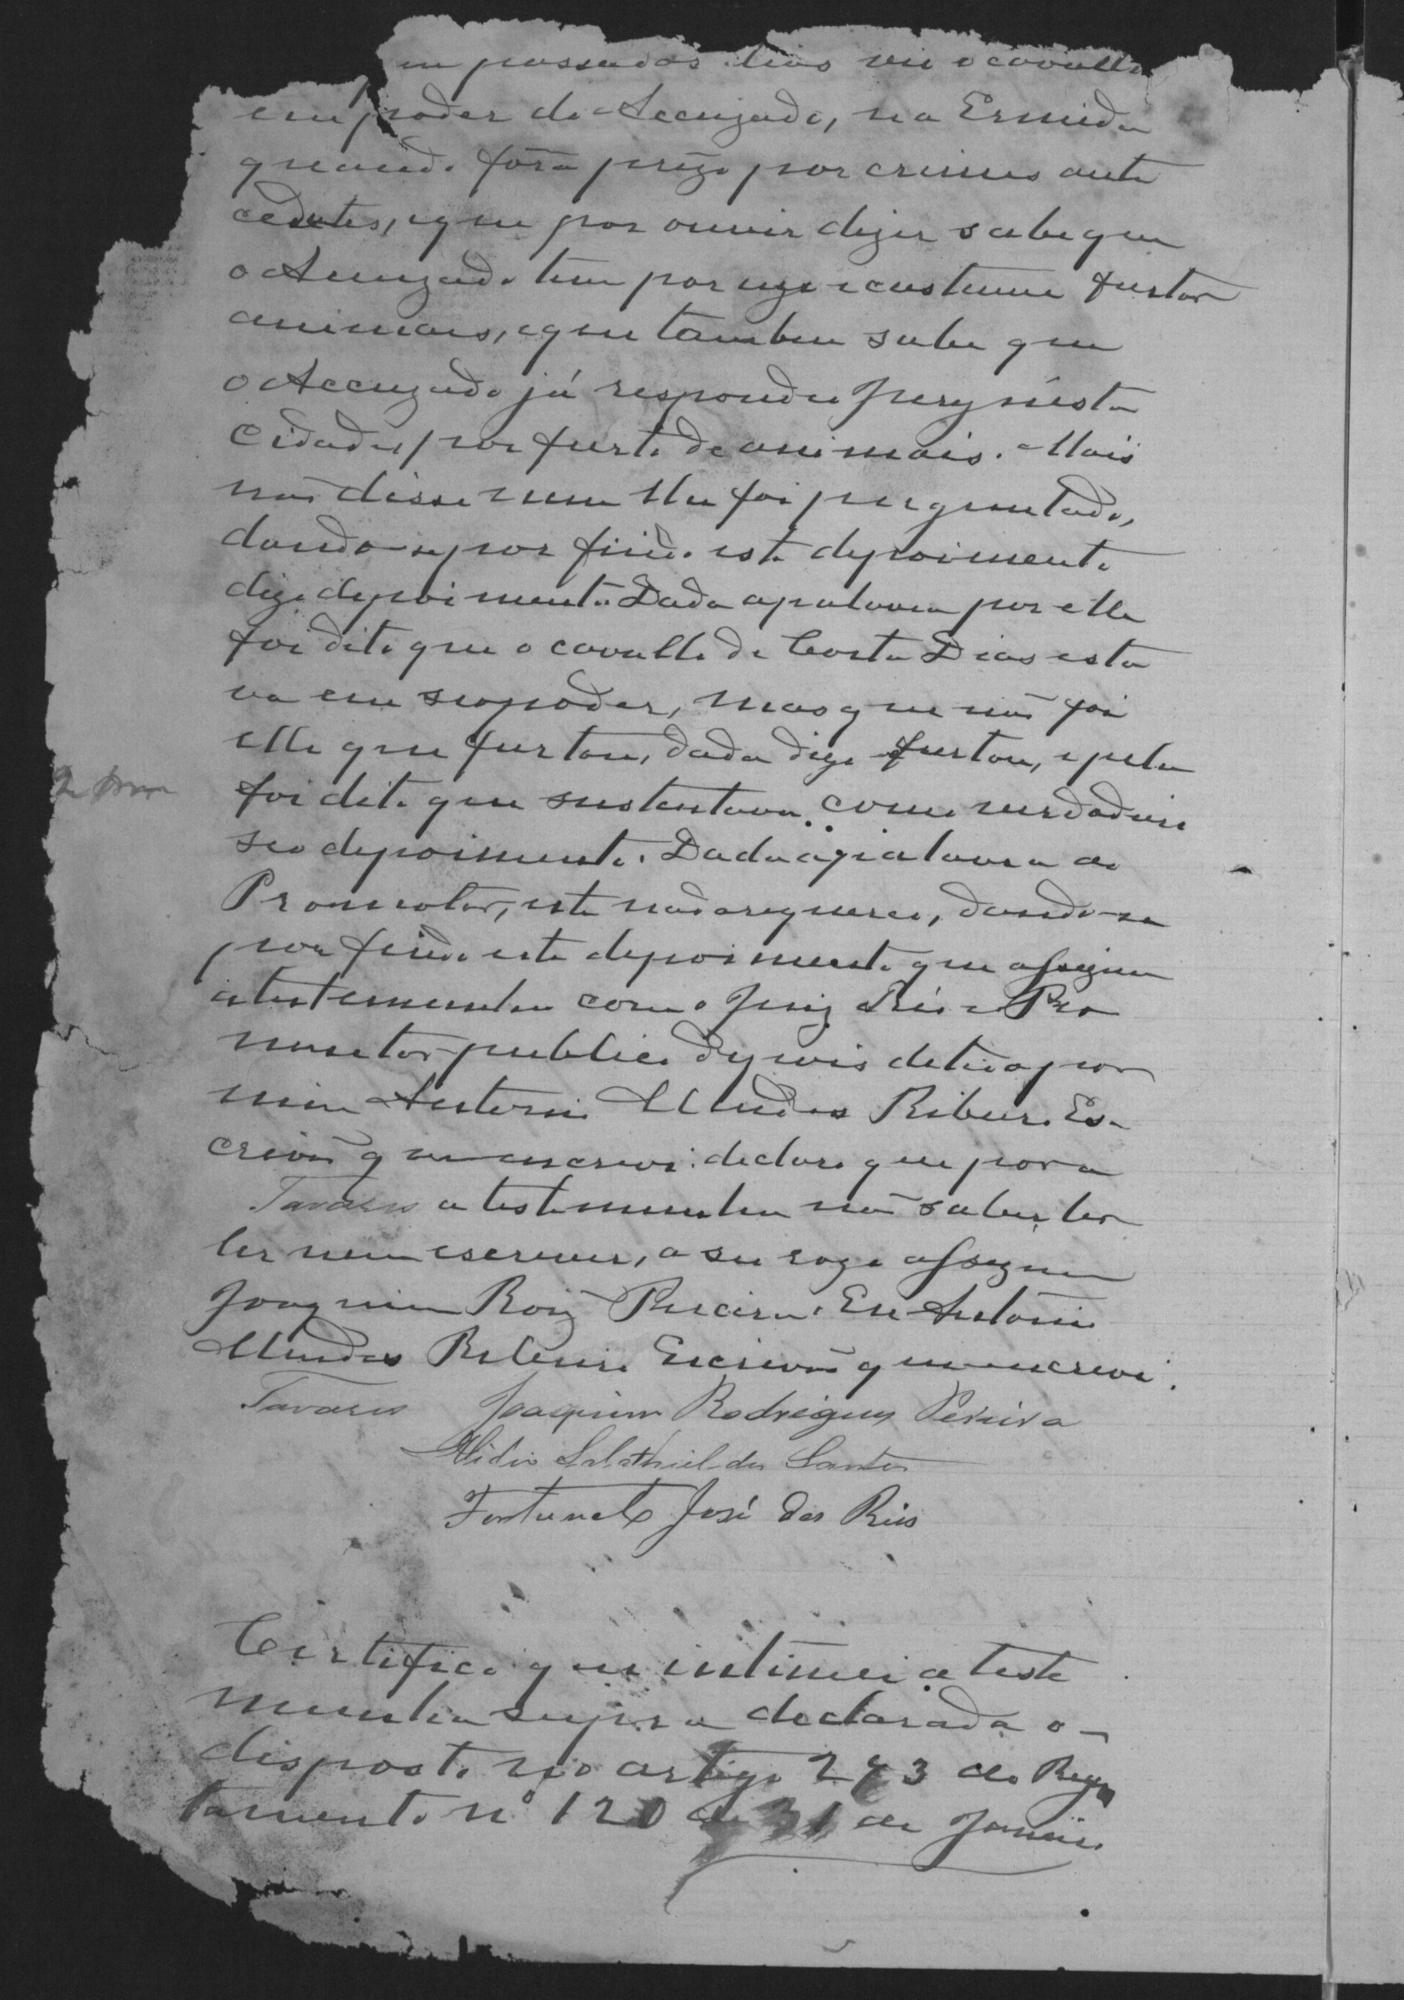 em passados dias viu o cavallo
em poder do Accuzado, na Ermida
quando fôra prezo por crimes ante
cedentes, e que por ouvir dizer sabe que
o Accuzado tem por uzo e custume furtar
animaes, e que tambem sabe que
o Accuzado já respondeu Jury nésta
Cidade, por furto de animais. Mais
não disse nem lhe foi perguntado,
dando-se por findo este dypoimento
digo depoimento. Dada a palavra por elle
foi dito que o cavallo de Costa Dias esta
va em seo poder, mas que não foi
elle que furtou, dada digo furtou, e pela
foi dito que sustentava como verdadeiro
seo depoimento. Dada a palavra ao
Promotor, este nada requereo, dando-se
por findo este depoimento que assigna
a testemunha com o Juiz Réo e Pro
motor publico depois de lido por
mim Antonio Mendes Ribeiro Es-
crivão que escrevi: declaro que por a
Tavares a testemunha não saber ler
ler nem escrever, a seu rogo assigna
Joaquim Roiz Pereira. Eu Antonio
Mendes Ribeiro Escrivão que escrevi.
Tavares Joaquim Rodrigues Pereira
Elidio Salathiel dos Santos
Fortunato José dos Reis
Certifico que intimei a teste
munha supra declarada o
disposto no artigo 293 do Regu
lamento nº 120 de 31 de Janeiro